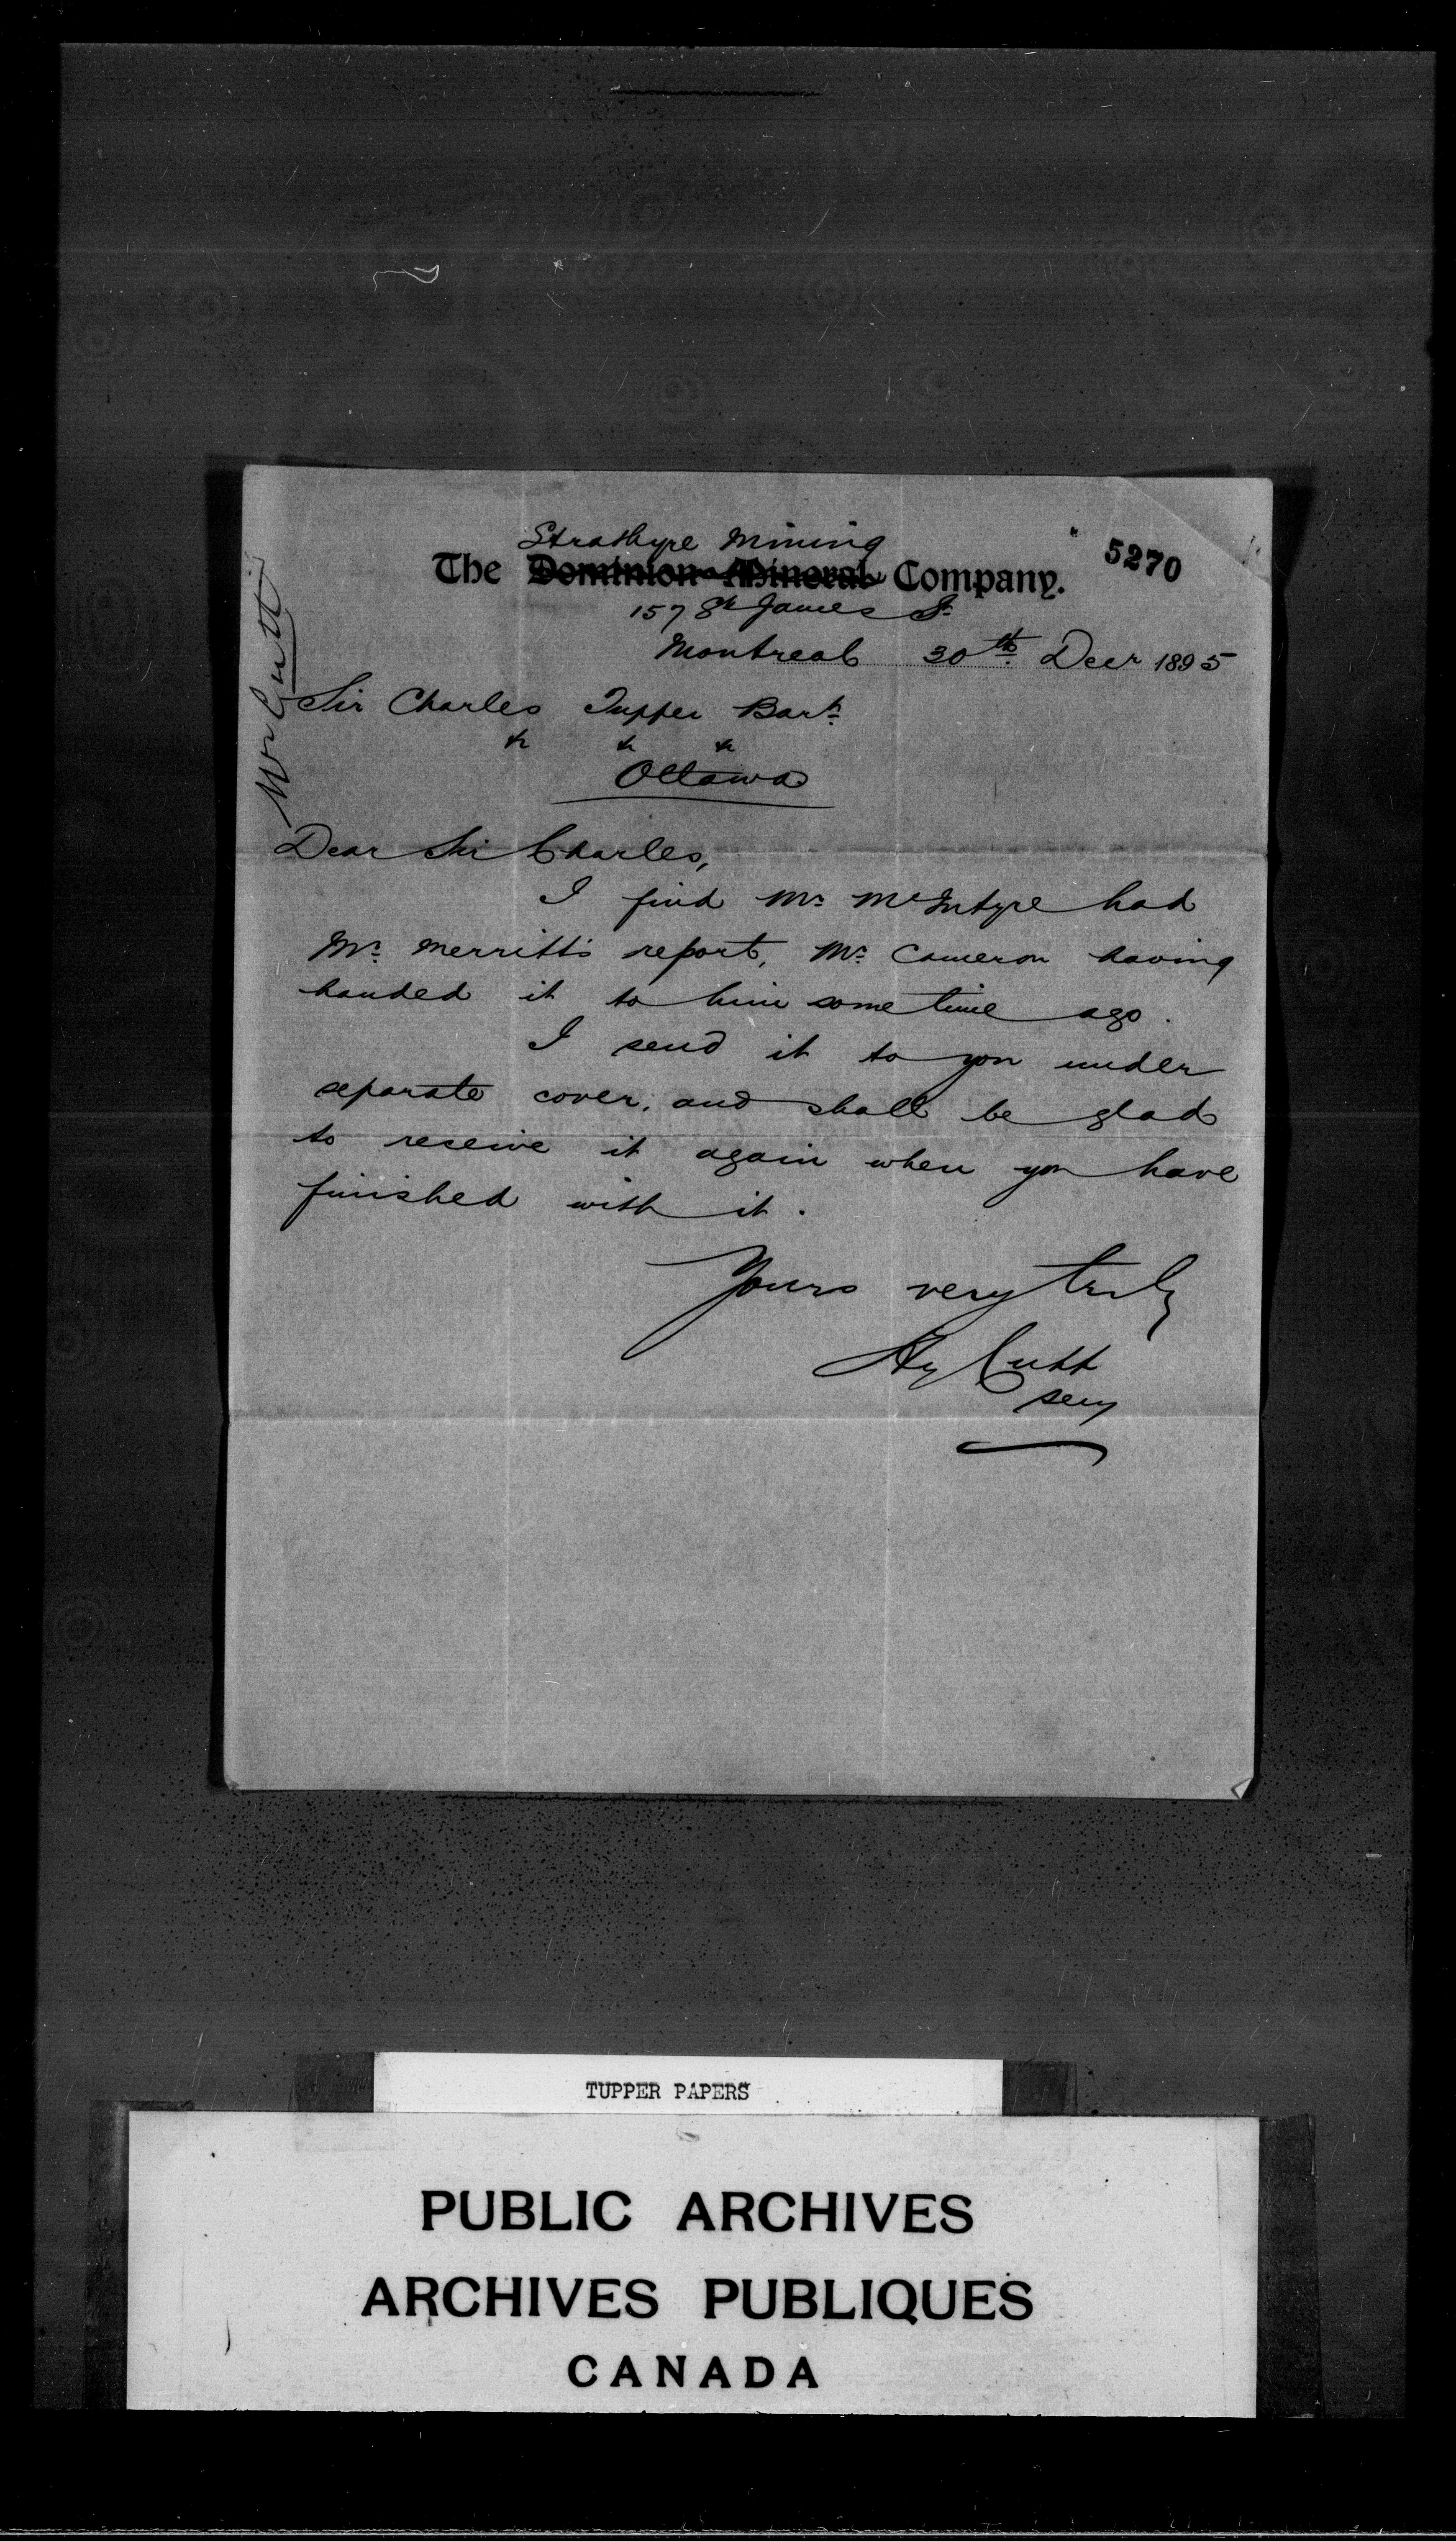 5270
Strathyre Mining
The Dominion Mineral Company.
157 St James St.
Montreal 30th Decr 1895
Mr Cutt
Sir Charles Tupper Bart.
&c &c &c
Ottawa
Dear Sir Charles,
I find Mr. McIntyre had
Mr. Merritt's report, Mr. Cameron having
handed it to him some time ago.
I send it to you under
separate cover, and shall be glad
to receive it again when you have
finished with it.
Yours very truly
Hy Cutt
secy
TUPPER PAPERS
PUBLIC ARCHIVES
ARCHIVES PUBLIQUES
CANADA